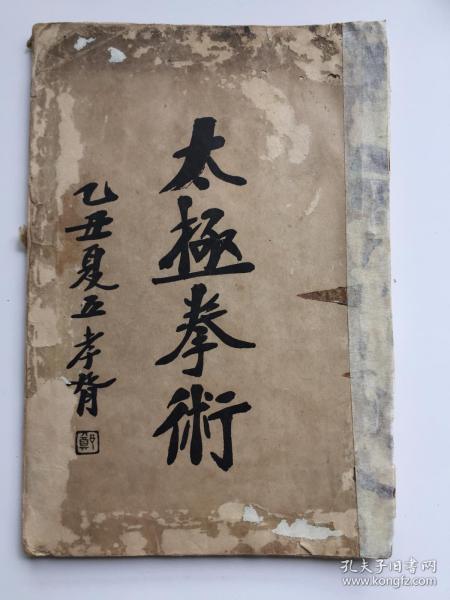 太極拳術
乙丑夏五孝胥
鄭
孔夫子旧书网
www.kongfz.com